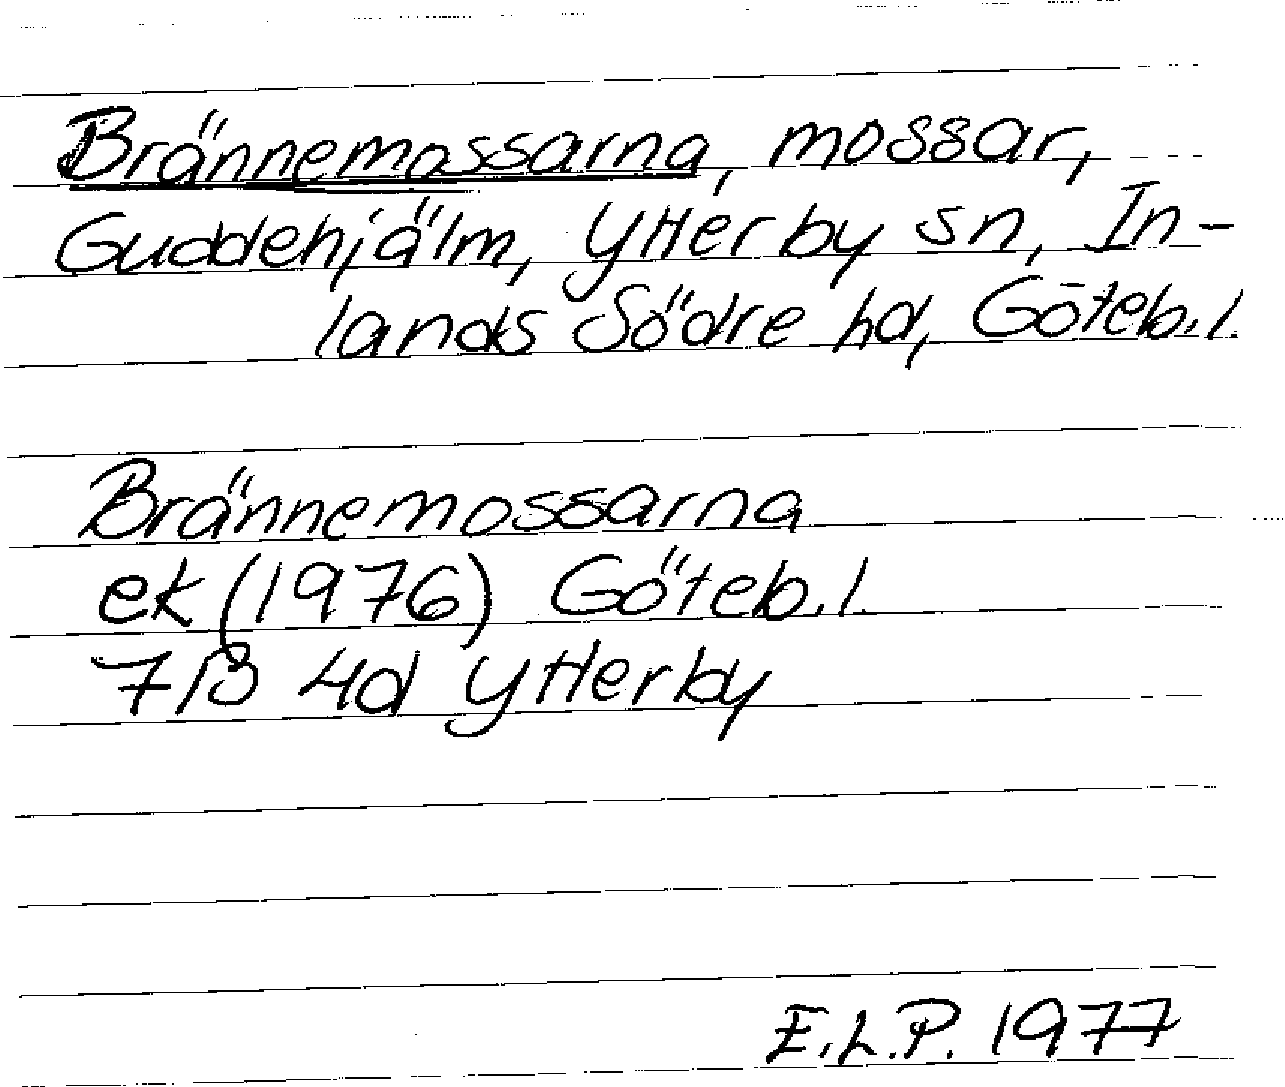 Brännemossarna, mossar,
Guddehjälm, Ytterby sn, In-
lands Södre hd, Göteb.l.
Brännemossarna
ek (1976) Göteb.l.
7B 4d Ytterby
E.L.P. 1977